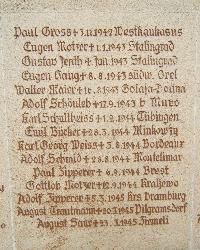 Paul Gross + 3.11.1942 Westkaukasus
Eugen Metzer + 1.1.1943 Stalingrad
Gustav + Jan. 1943 Stalingrad
Eugen Haug + 8.8.1943 südw. Orel
Walter Maier + 1943
Adolf Schäuleb + 12.9.1943
Karl Schultheiss + 1944 Tübingen
Emil Bücker + 28.3.1944 Minkowzy
Karl Georg Weiss + 5.8.1944 Bordeaux
Adolf Schmid + 28.8.1944 Montelimar
Paul Zipperer + 6.9.1944 Brest
Gottlob Metzer + 12.9.1944 Kraljewo
Adolf Zipperer + 5.3.1945 Krs. Dramburg
August Trautmann + 20.3.1945 Pilgramsdorf
August Saur + 23.3.1945